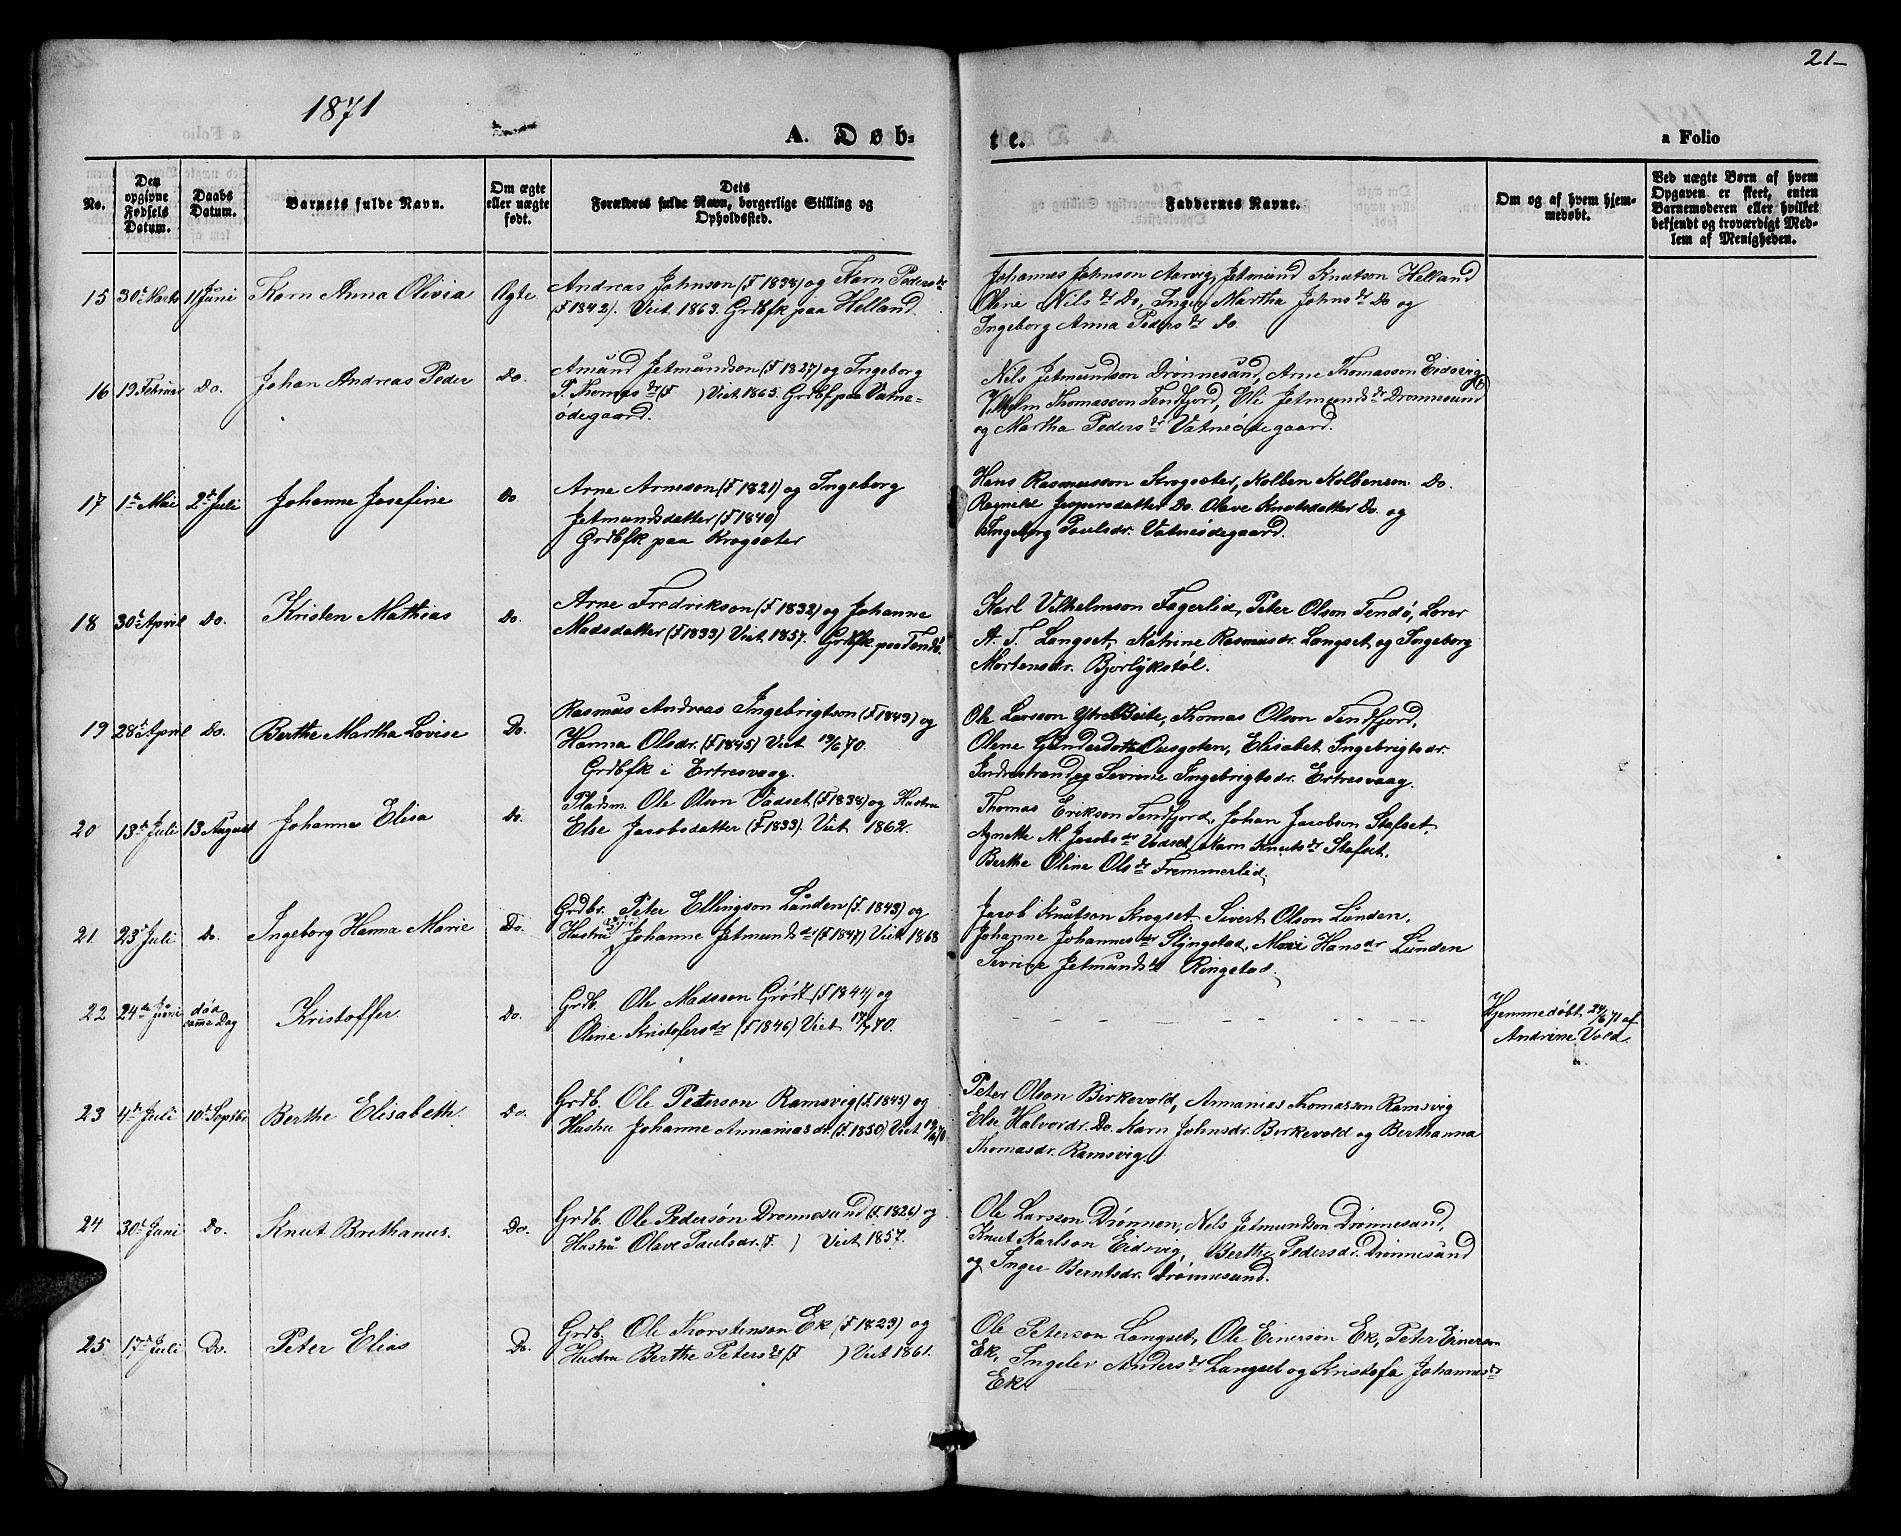 21-
1871
A. Døb-
te.
a Folio
No.
Den opgivne Fødsels Datum.
Daabs Datum.
Barnets fulde Navn.
Om ægte eller uægte født.
Dets Forældres fulde Navn, borgerlige Stilling og Opholdssted.
Faddernes Navne.
Om og af hvem hjemmedøbt.
Ved uægte Børn af hvem Opgaven er skeet, enten Barnemoderen eller hvilket bekjendt og troværdigt Medlem af Menigheden.
15 30t Marts 11 Juni Karn Anna Olivia Ægte
Andreas Johnson (F 1838) og Karn Pedersdr
(F 1842). Viet 1863. Grdbfk paa Helland.
Johannes Johnson Aarvig, Jetmund Knutson Helland
Olene Nilsdr Do, Inger Martha Johnsdr Do og
Ingeborg Anna Pedersdr Do.
16 19 Februar Do. Johan Andreas Peder Do.
Amund Jetmundson (F 1827) og Ingeborg
P. Thomasdr (F ) Viet 1865. Grdbf paa Vatne=
ødegaard.
Nils Jetmundson Drønnesund, Arne Thomasson Eidsvig
Vilhelm Thomasson Tendfjord, Eli Jetmundsdr Drønnesund
og Martha Pedersdr Vatneødegaard.
17 1te Mai 2t Juli Johanne Josefine Do
Arne Arneson (F 1821) og Ingeborg
Jetmundsdatter (F 1840)
Grdbfk paa Krogsæter
Hans Rasmusson Krogsæter, Kolben Kolbenson Do.
Ragnild Jespersdatter Do. Olave Knutsdatter Do. og
Ingeborg Paulsdr. Vatneødegaard.
18 30t April Do. Kristen Mathias Do.
Arne Fredrikson (F 1832) og Johanne
Madsdatter (F 1833) Viet 1857. Grdbfk. paa Tendø.
Karl Vilhelmson Fagerlid, Peter Olson Tendø, Lærer
A. T. Langset, Katrine Rasmusdr. Langset og Ingeborg
Mortensdr. Bjorlykstøl.
19 28t April Do. Berthe Martha Lovise Do.
Rasmus Andreas Ingebrigtson (F 1849) og
Hanna Olsdr. (F 1845) Viet 19/6 70.
Grdbfk i Ertresvaag.
Ole Larsson Ytre Beite, Thomas Olson Tendfjord,
Olene Gundersdotter Ousgoten, Elisabet Ingebrigtsdr.
Indrestrand og Sevrine Ingebrigtsdr. Ertresvaag.
20 13t Juli 13 August Johanna Elisa Do.
Pladsm. Ole Olson Vadset (F 1838) og Hustru
Else Jacobsdatter (F 1833). Viet 1862.
Thomas Erikson Tendfjord, Johan Jacobson Stafset,
Agnethe M. Jacobsdr Vadset, Karn Knutsdr Stafset,
Berthe Oline Olsdr Fremmerlid.
21. 23t Juli Do. Ingeborg Hanna Marie Do.
Grdbr. Peter Ellingson Lunden (F. 1843) og
Hustru Johanne Jetmundsdr (F 1847) Viet 1868
Jacob Knutson Krogset. Sivert Olson Lunden,
Johanne Johannesdr Slyngstad, Mari Hansdr Lunden
Sevrine Jetmundsdr Ringstad.
22 24de Juni død samme Dag Kristoffer. Do.
Grdb. Ole Madsson Grødt (F 1844) og
Oline Kristofersdr (F 1846) Viet 17/7 70.
Hjemmedøbt 24/6 71 af
Andrine Vold.
23 4de Juli 10t Septbr. Berthe Elisabeth. Do.
Grdb. Ole Peterson Ramsvig (F 1845) og
Hustru Johanne Annaniasdr. (F 1850) Viet 19/6 70
Peter Olson Birkevold, Annanias Thomasson Ramsvig
Else Halvordr. Do. Karn Johnsdr. Birkevold og Berthanna
Thomasdr. Ramsvig.
24 30t Juni Do. Knut Brethanus. Do.
Grdb. Ole Pedersøn Drønnesund (F. 1826) og
Hustru Olave Paulsdr. (F. ) Viet 1857.
Ole Larsson Drønnen, Nils Jetmundson Drønnesund,
Knut Karlson Eidsvig, Berthe Pedersdr. Drønnesund
og Inger Berntsdr. Drønnesund.
25 17de Juli Do. Peter Elias Do.
Grdb. Ole Thorstenson Ek (F 1829) og
Hustru Berthe Petersdr (F ) Viet 1861.
Ole Peterson Langset, Ole Einerson Ek, Peter Einerson
Ek, Ingelev Andersdr Langset og Kristofa Johannesdr
Ek.